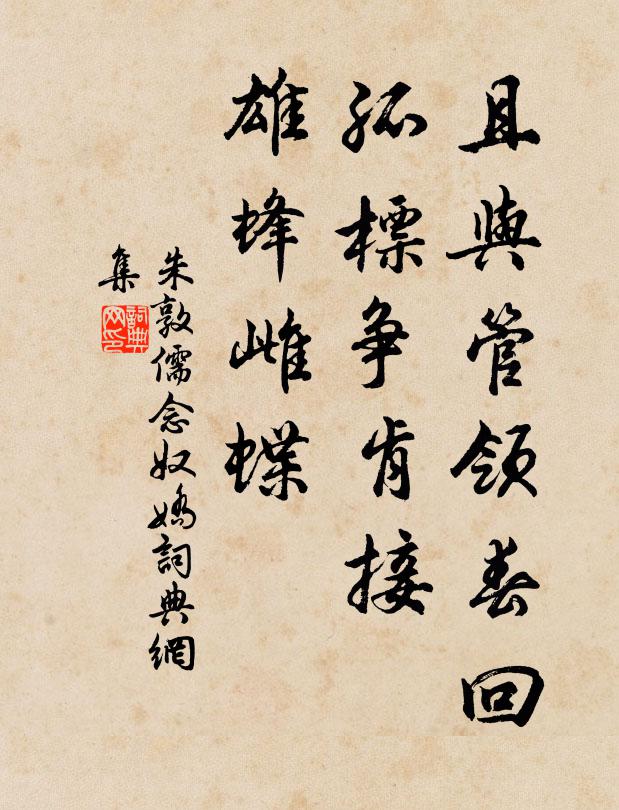 且與管領春回
孤標争肯接
雄蜂雌蝶
朱敦儒念奴嬌詞典網
集
詞典
网印